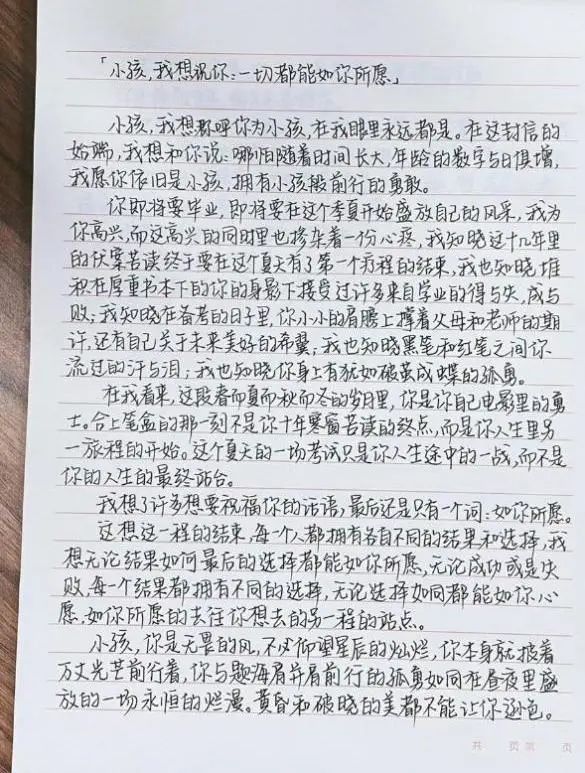 「小孩,我想说你:一切都能如你所愿」
小孩,我想称呼你为小孩,在我眼里永远都是。在这封信的
始端,我想和你说:哪怕随着时间长大,年龄的数字与日俱增,
我愿你依旧是小孩,拥有小孩般前行的勇敢。
你即将要毕业,即将要在这个季夏开始盛放自己的风采,我为
你高兴,而这高兴的同时里也掺杂着一份心疼,我知晓这十几年里
的伏案苦读终于要在这个夏天有了第一个方程的结束,我也知晓堆
积在厚重书本下的你的身影下接受过许多来自学业的得与失,成与
败;我知晓在备考的日子里,你小小的肩膀上撑着父母和老师的期
许,还有自己关于未来美好的希冀;我也知晓黑笔和红笔之间你
流过的汗与泪;我也知晓你身上有犹如破茧成蝶的孤勇。
在我看来,这段春而夏而秋而冬的岁月里,你是你自己电影里的勇
士。合上笔盒的那一刻不是你十年寒窗苦读的终点,而是你人生里另
一旅程的开始。这个夏天的一场考试只是你人生途中的一战,而不是
你的人生的最终站台。
我想了许多想要祝福你的话语,最后还是只有一个词:如你所愿。
这想这一程的结束,每一个人都拥有各自不同的结果和选择,我
想无论结果如何最后的选择都能如你所愿,无论成功或是失
败,每一个结果都拥有不同的选择,无论选择如何都能如你心
愿,如你所愿的去往你想去的另一程的站点。
小孩,你是无畏的风,不必仰望星辰的灿烂,你本身就披着
万丈光芒前行着,你与题海肩并肩前行的孤勇如同在昼夜里盛
放的一场永恒的烂漫。黄昏和破晓的美都不能让你逊色。
共 页 第 页